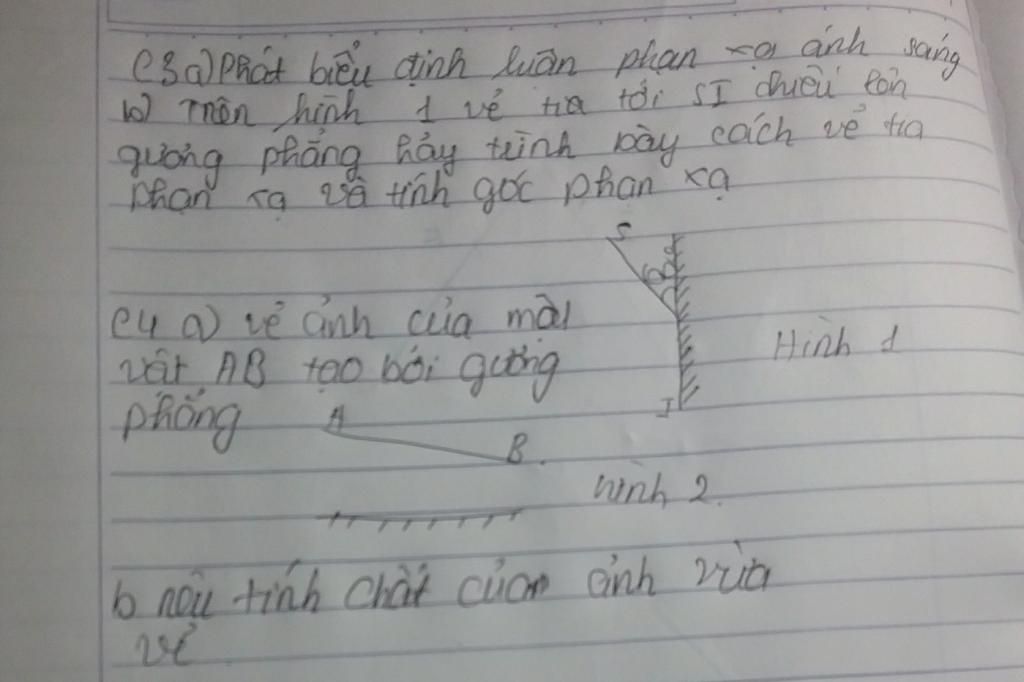 C3 a) Phát biểu định luận phạn xạ ánh sáng
b) Trên hình 1 vẽ tia tới SI chiếu lên
gương phẳng hãy trình bày cách vẽ tia
phạn xạ và tính góc phạn xạ
S
C4 a) vẽ ảnh của một
vật AB tạo bởi gương
phẳng
Hình 1
I
A
B
hình 2.
b nêu tính chất của ảnh vừa
vẽ